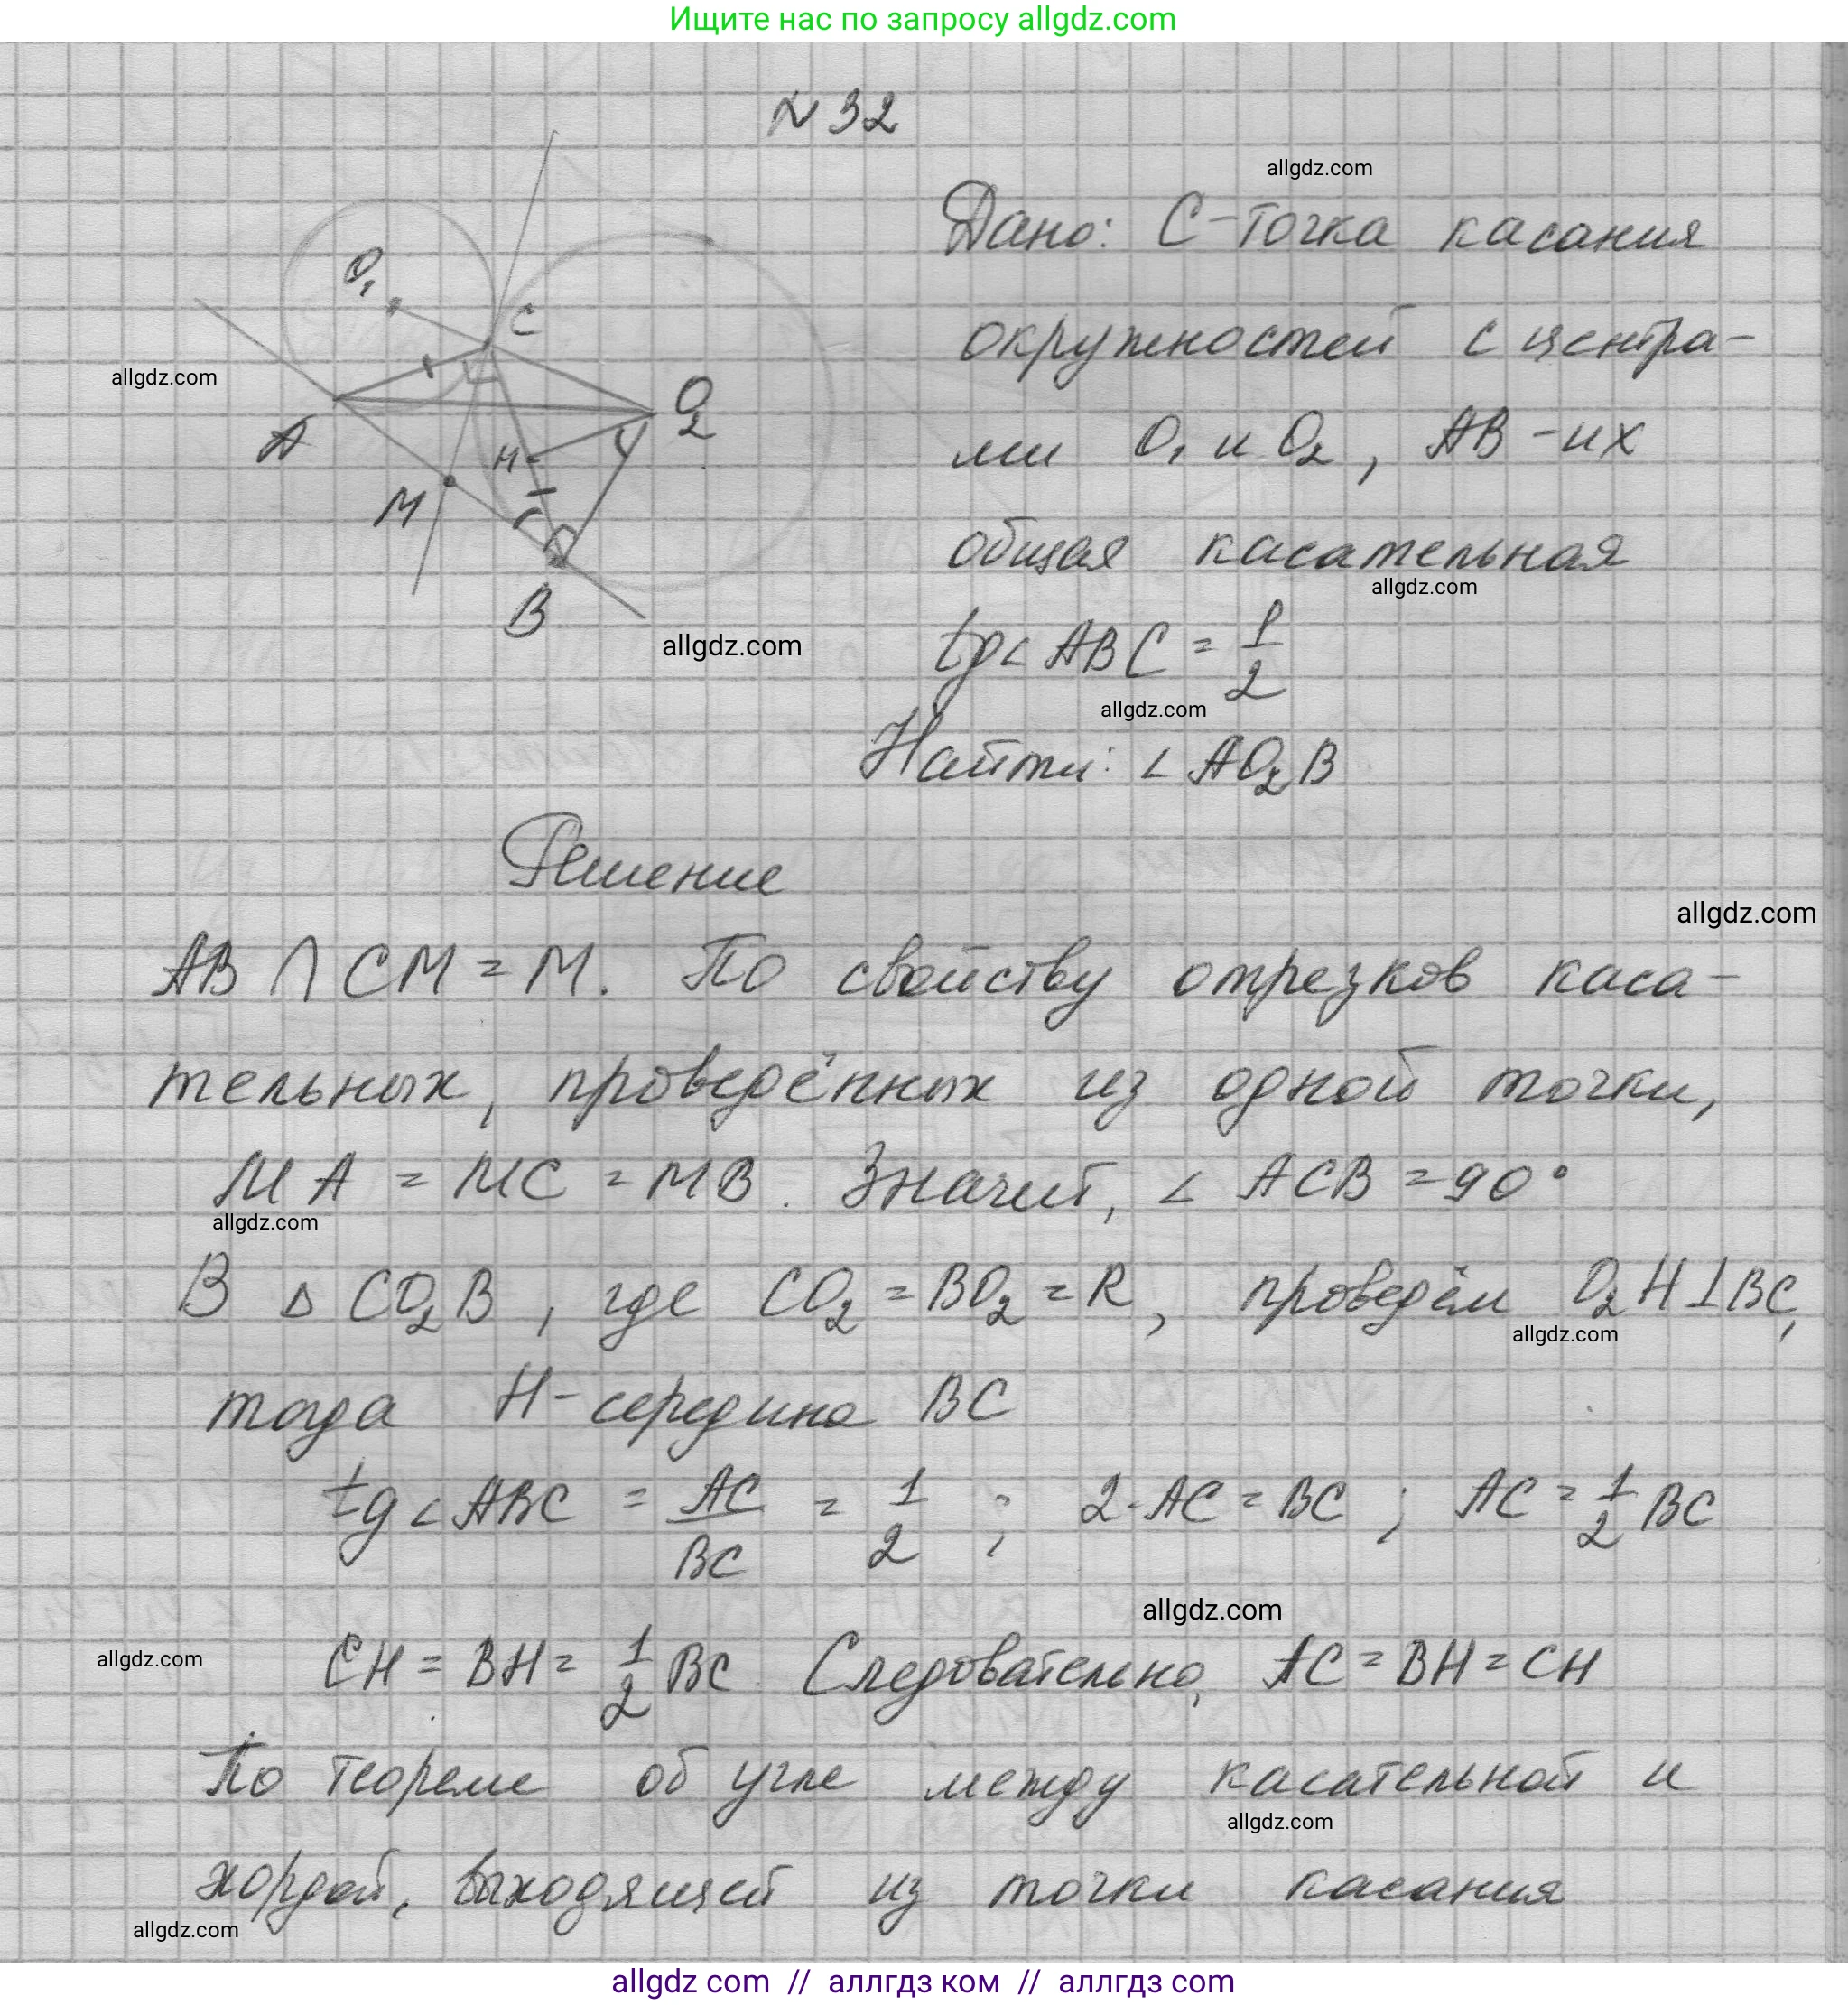 Ищите нас по запросу allgdz.com
№ 32
allgdz.com
Дано: C - точка касания
O₁
C
окружностей с центра-
allgdz.com
O₂
A
ми O₁ и O₂, AB - их
H
M
общая касательная
allgdz.com
B
allgdz.com
tg∠ABC = 1/2
allgdz.com
Найти: ∠AO₂B
Решение
allgdz.com
AB ∩ CM = M. По свойству отрезков каса-
тельных, проведённых из одной точки,
MA = MC = MB. Значит, ∠ACB = 90°
allgdz.com
В △ CO₂B, где CO₂ = BO₂ = R, проведём O₂H⊥BC,
allgdz.com
тогда H - середина BC
tg∠ABC = AC/BC = 1/2 ; 2·AC = BC ; AC = 1/2 BC
allgdz.com
allgdz.com
CH = BH = 1/2 BC. Следовательно, AC = BH = CH
По теореме об угле между касательной и
allgdz.com
хордой, выходящей из точки касания
allgdz.com
allgdz com // аллгдз ком // аллгдз com